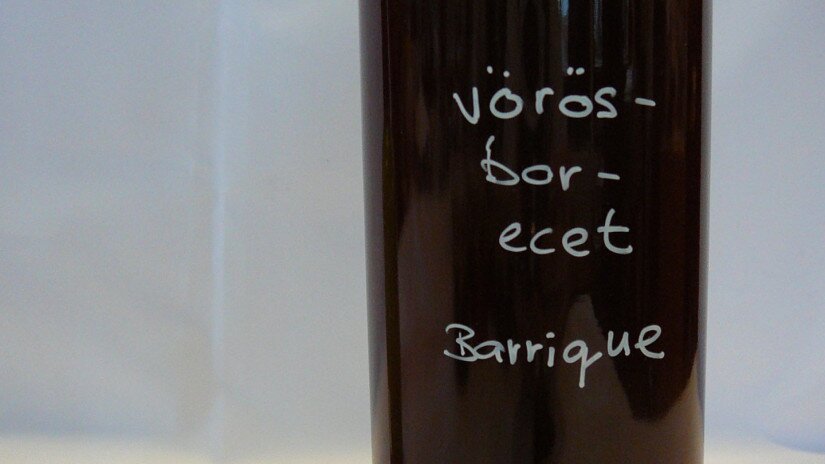 vörös-
bor-
ecet
Barrique